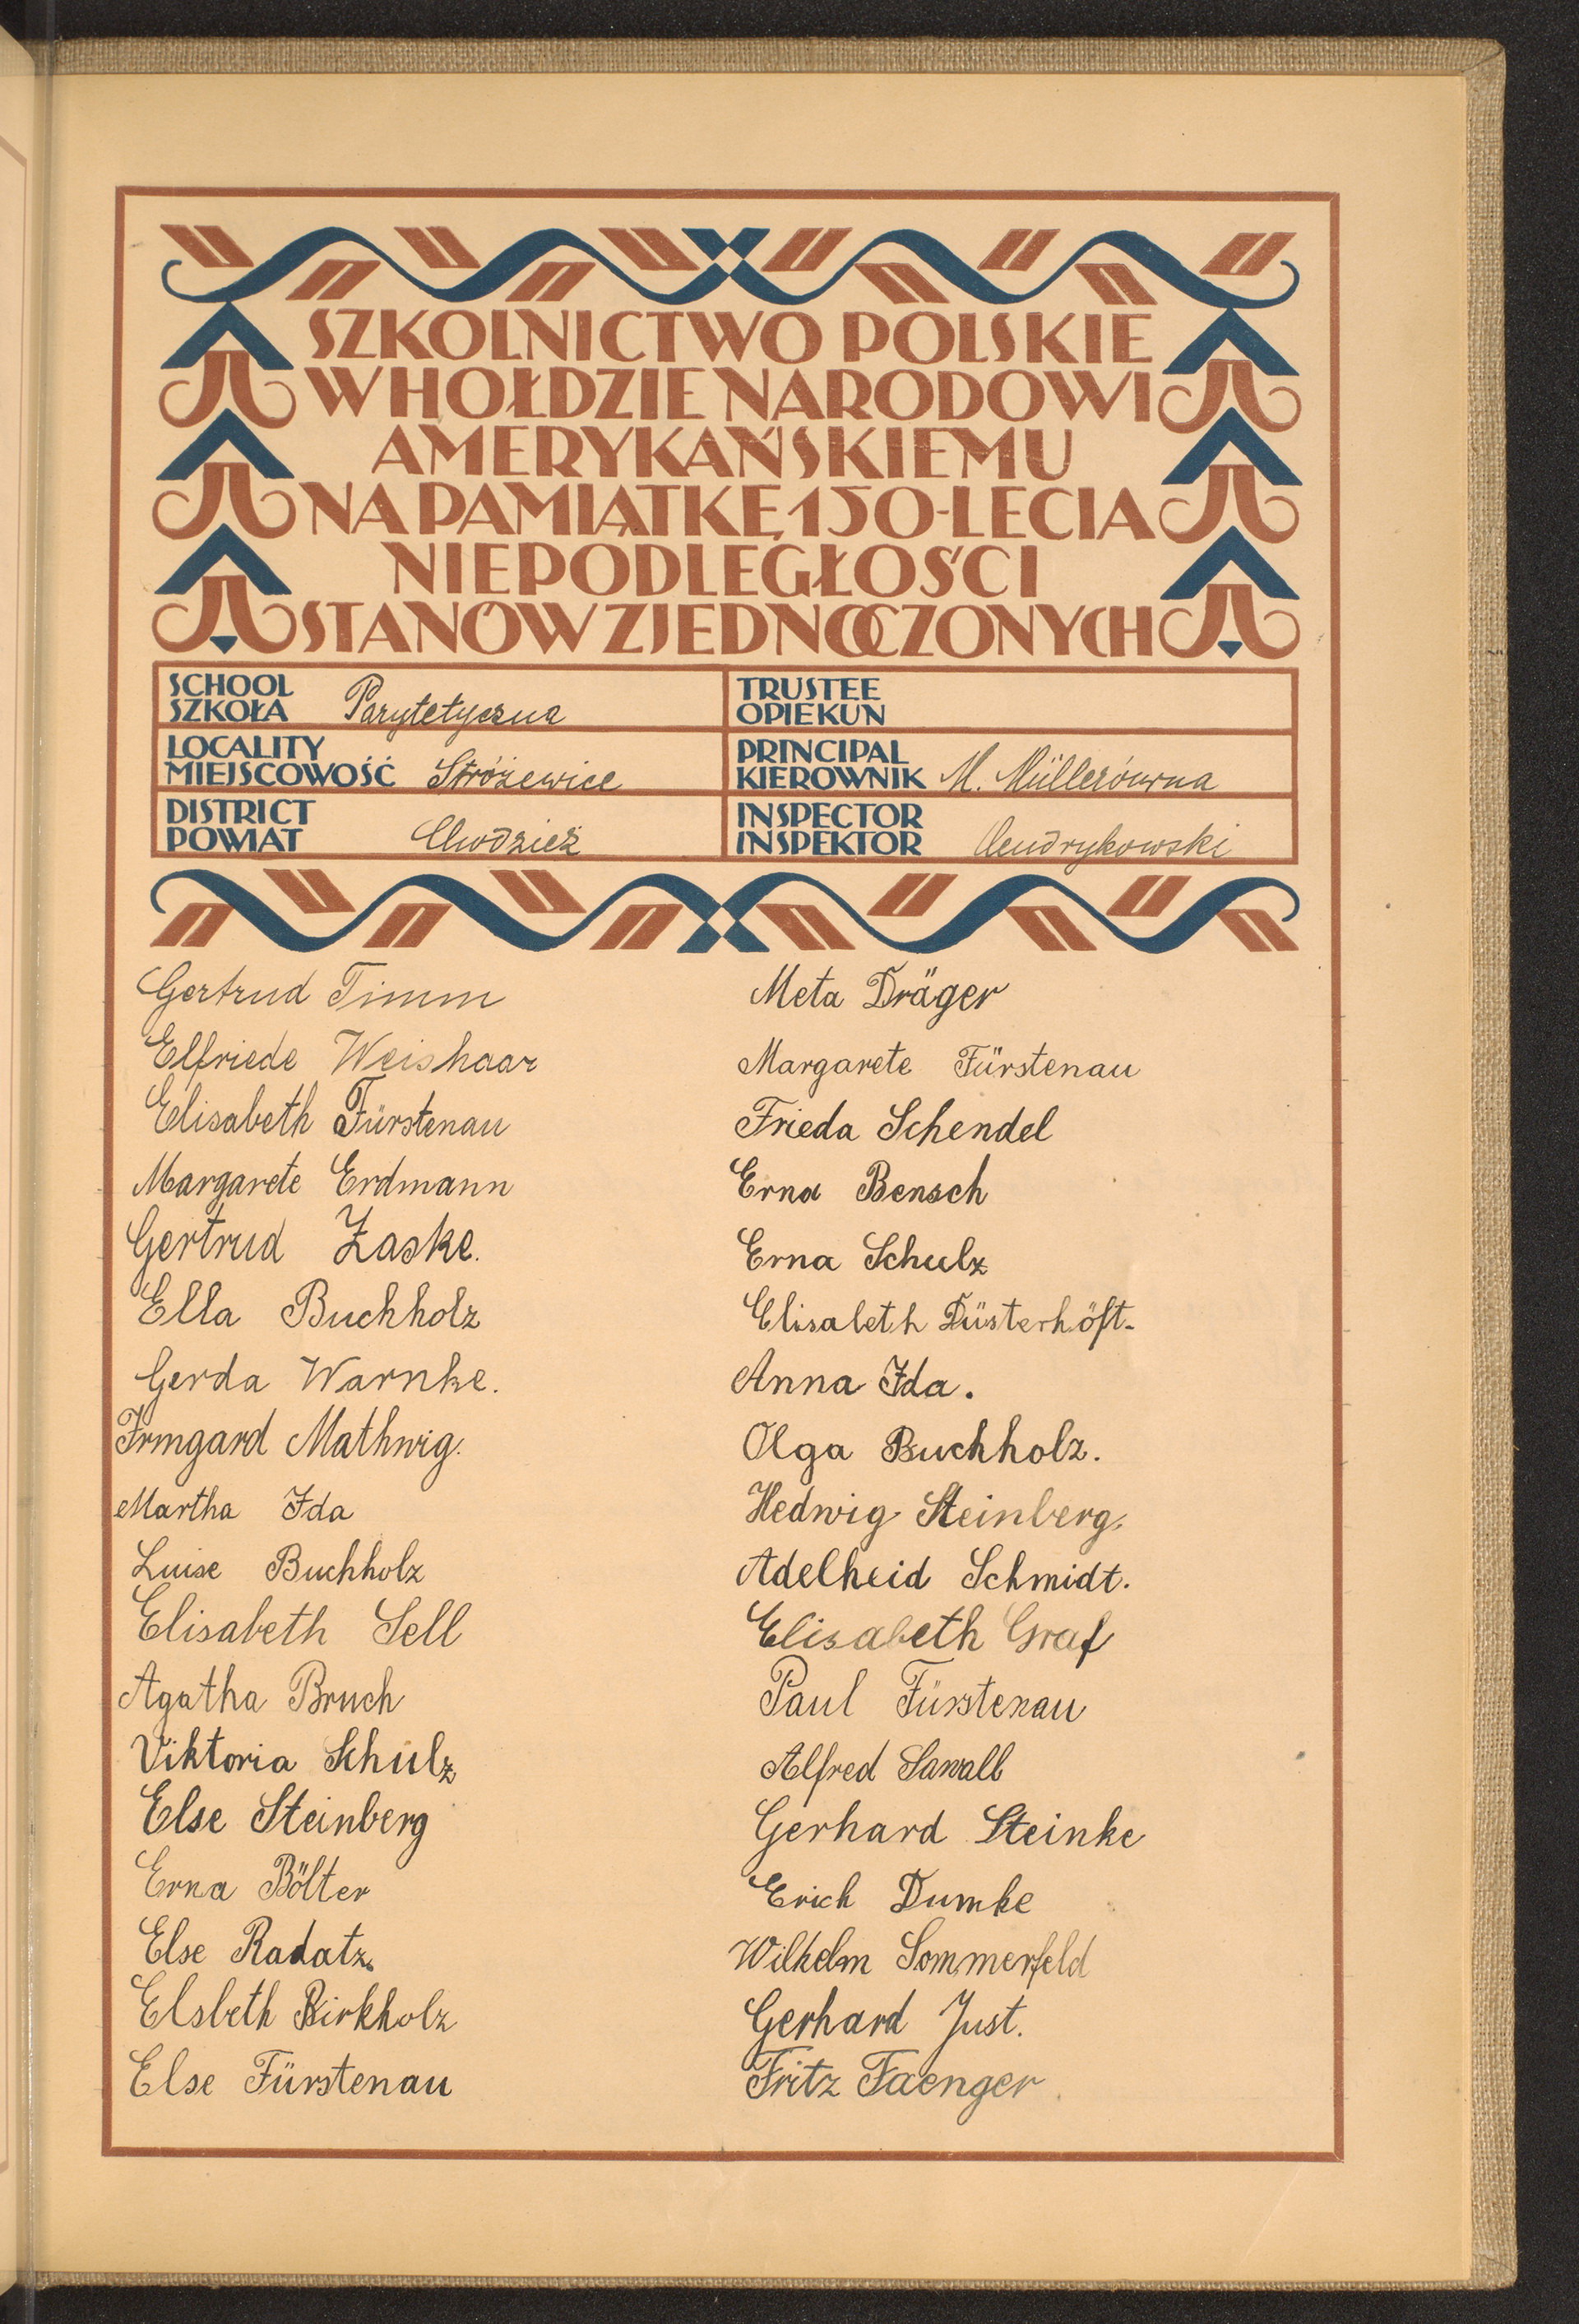 SZKOLNICTWO POLSKIE
W HOŁDZIE NARODOWI
AMERYKAŃSKIEMU
NA PAMIĄTKĘ 150-LECIA
NIEPODLEGŁOŚCI
STANÓW ZJEDNOCZONYCH
SCHOOL
SZKOŁA Parytetyczna
LOCALITY
MIEJSCOWOŚĆ Stróżewice
DISTRICT
POWIAT Chodzież
TRUSTEE
OPIEKUN
PRINCIPAL
KIEROWNIK M. Müllerówna
INSPECTOR
INSPEKTOR
Gertrud Timm
Elfriede Weishaar
Elisabeth Fürstenau
Margarete Erdmann
Gertrud Zaske.
Ella Buchholz
Gerda Warnke.
Irmgard Mathwig.
Martha Ida
Luise Buchholz
Elisabeth Sell
Agatha Bruch
Viktoria Schulz
Else Steinberg
Erna Bölter
Else Radatz.
Elsbeth Birkholz
Else Fürstenau
Meta Dräger
Margarete Fürstenau
Frieda Schendel
Erna Bensch
Erna Schulz
Elisabeth Düsterhöft.
Anna Ida.
Olga Buchholz.
Hedwig Steinberg.
Adelheid Schmidt.
Elisabeth Graf
Paul Fürstenau
Alfred Sawall
Gerhard Steinke
Erich Dumke
Wilhelm Sommerfeld
Gerhard Just.
Fritz Faenger